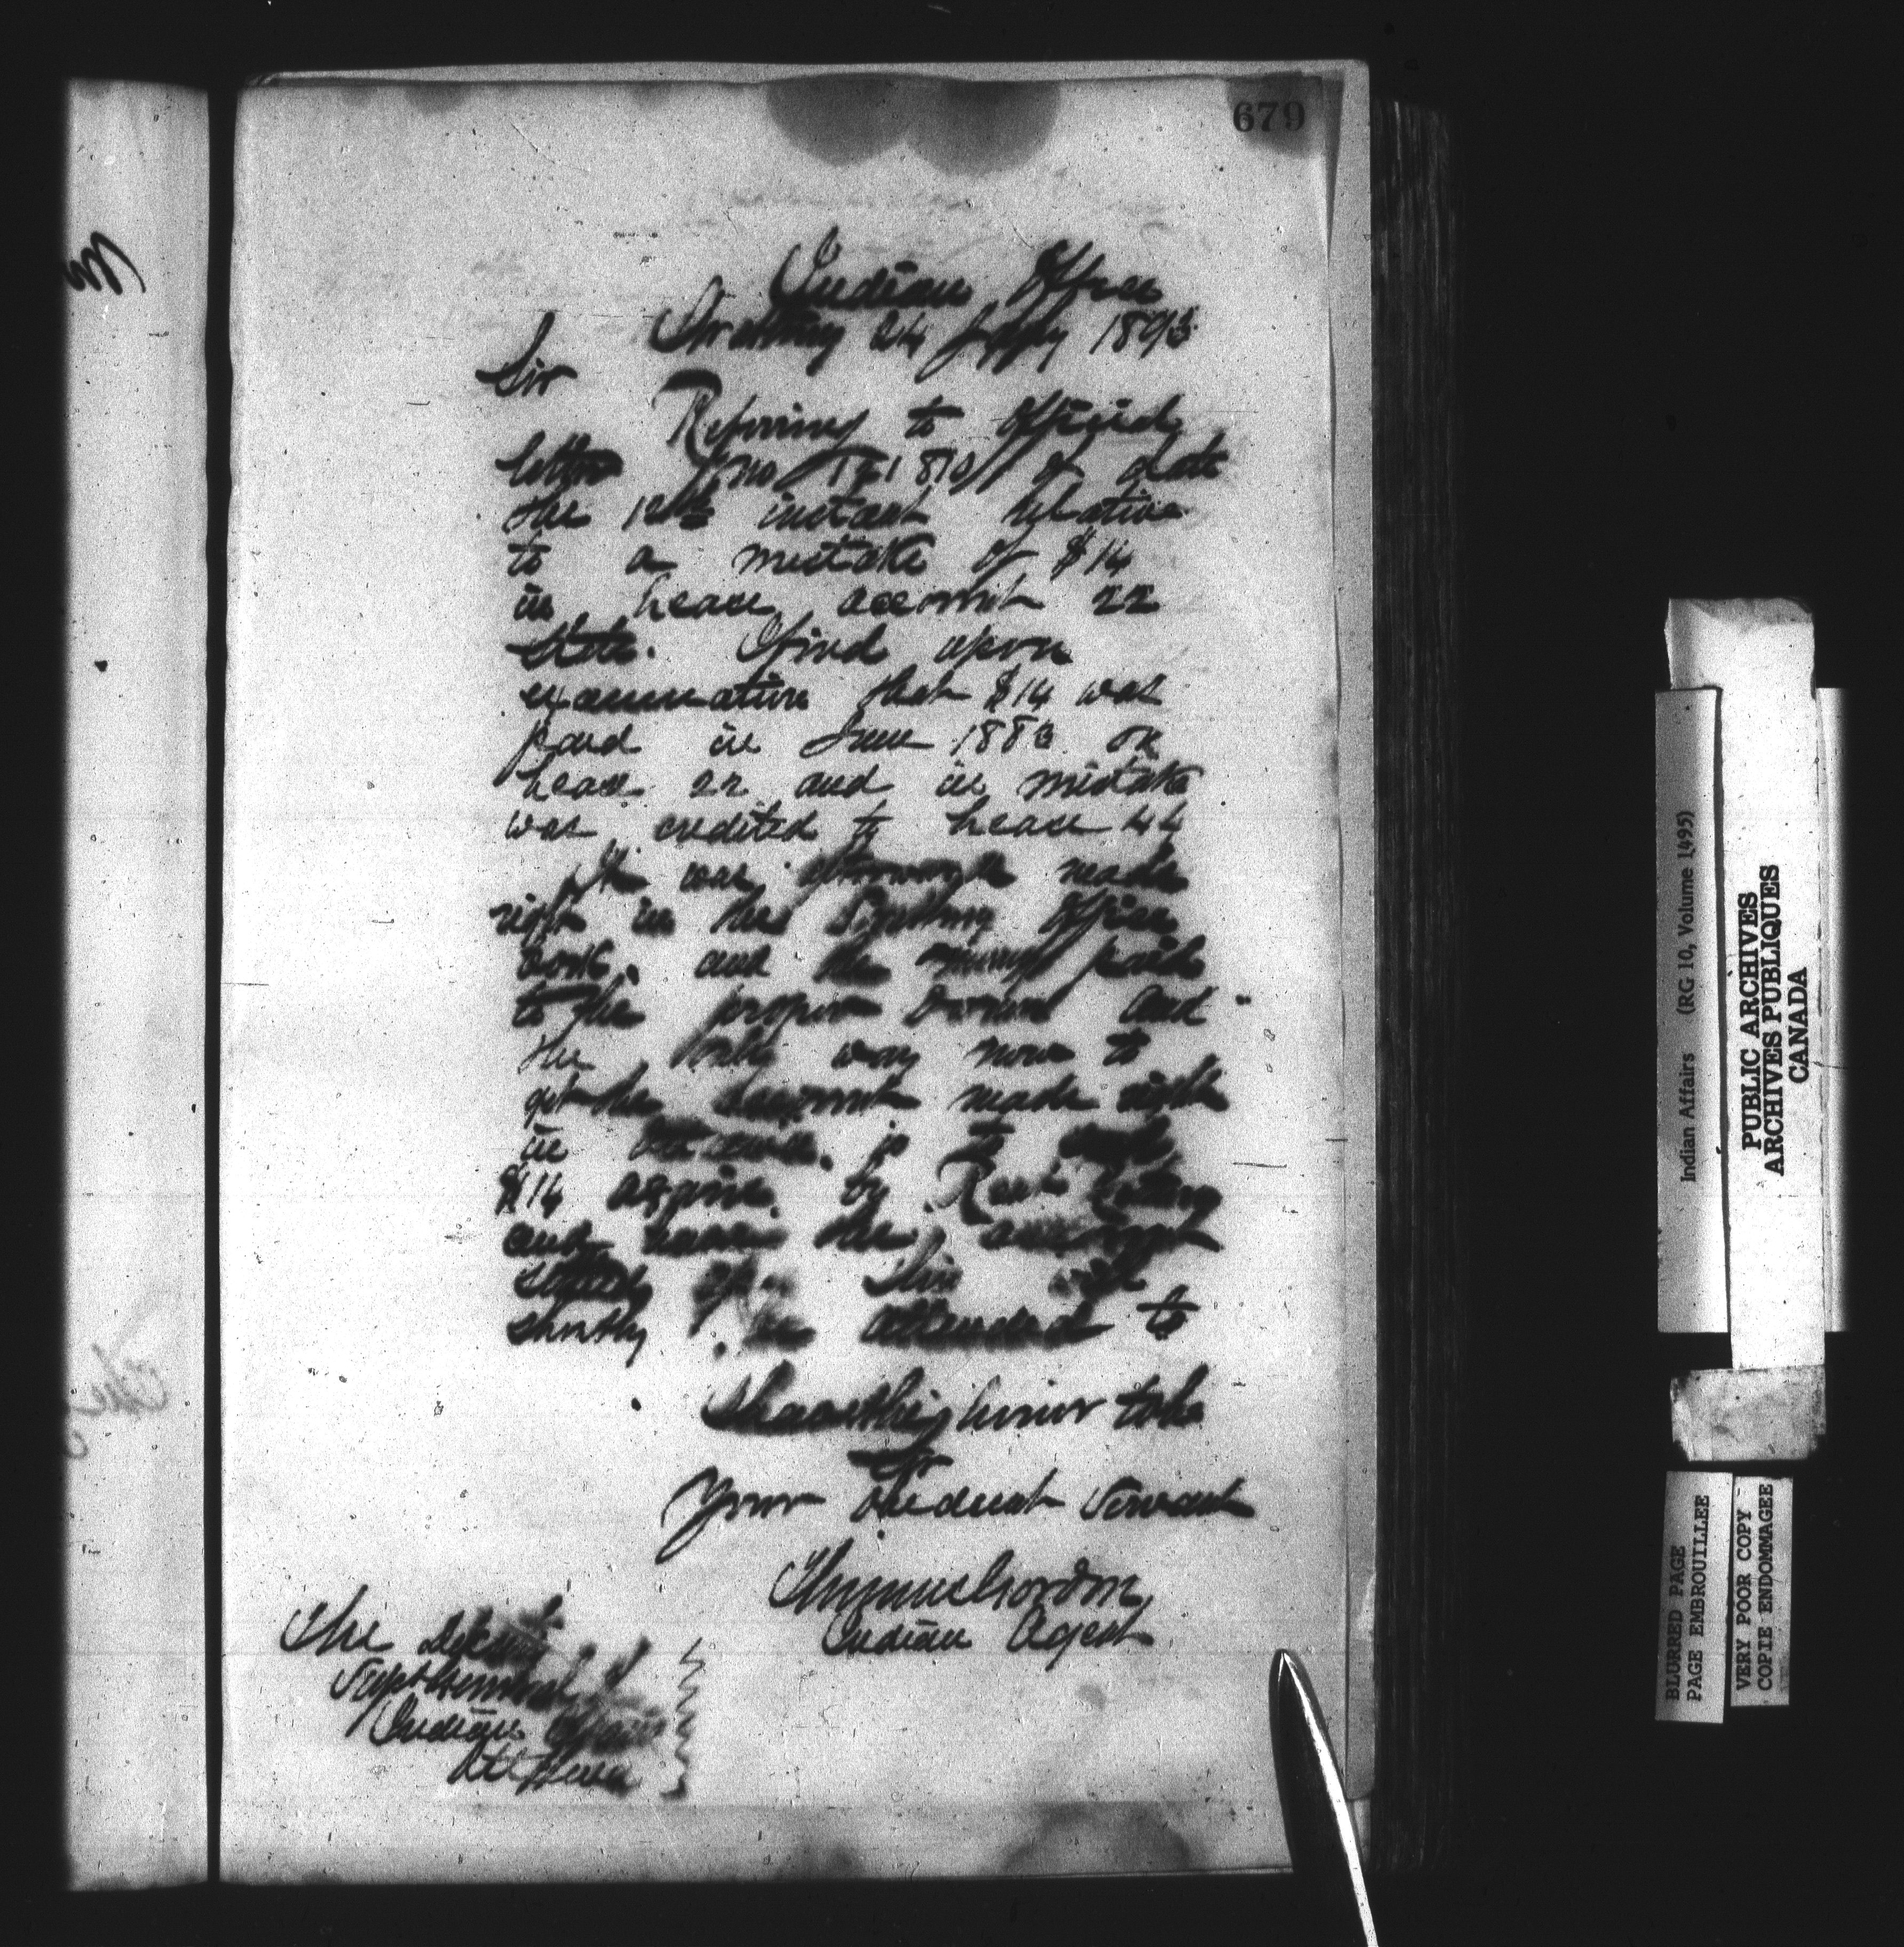 679
Indian Office
Strathroy 24 July 1893
Sir
Referring to Official
letter No of date
the 12th instant relative
to a mistake of $14
in lease account 22
I find upon
examination that $14 was
paid in June 1883 on
lease 22 and in mistake
was credited to lease 44
It was afterwards made
right in the Office
and the money paid
to the proper and
the only way now to
get the account made right
in is to
$14 again by
and have the account
This will
shortly be attended to
I have the honor to be
Sir
Your Obedient Servant
Gordon
Indian Agent
The Deputy
Supt General of
Indian Affairs
Ottawa
Indian Affairs (RG 10, Volume 1495)
PUBLIC ARCHIVES
ARCHIVES PUBLIQUES
CANADA
BLURRED PAGE
PAGE EMBROUILLEE
VERY POOR COPY
COPIE ENDOMMAGEE